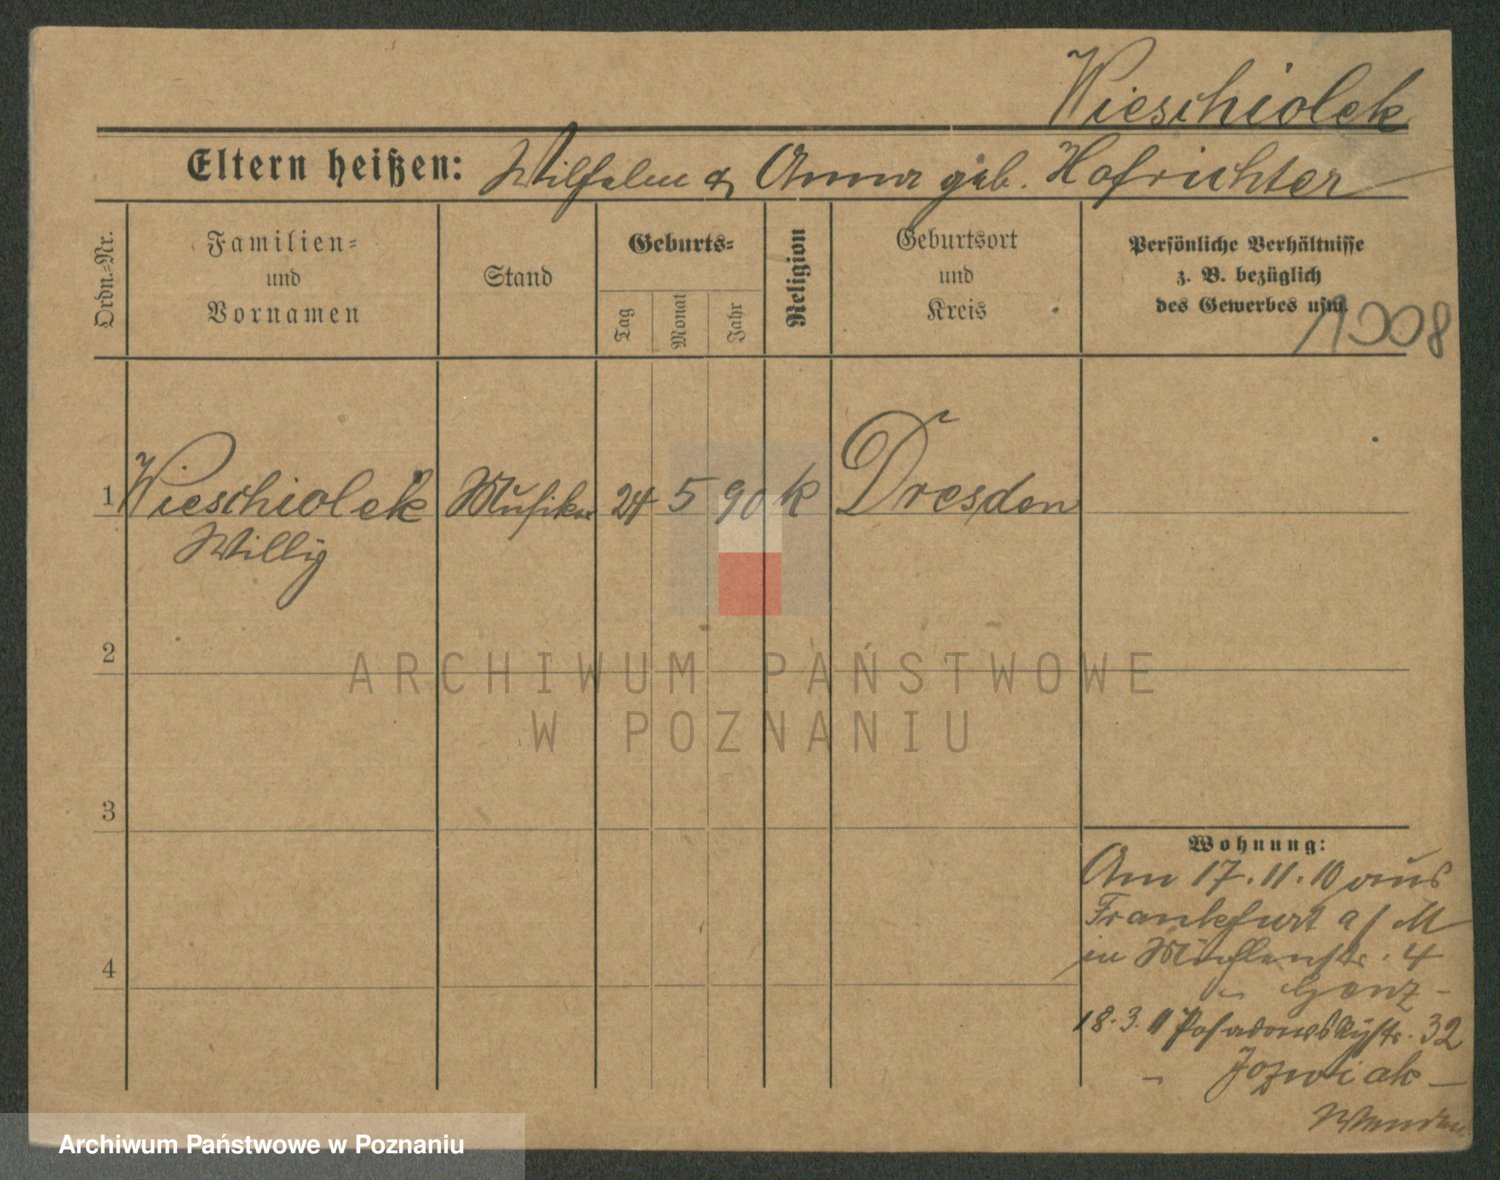 Wieschiolek
Eltern heißen: Wilhelm & Anna geb. Hofrichter
Ordn.=Nr.
Familien=
und
Vornamen
Stand
Geburts=
Tag
Monat
Jahr
Religion
Geburtsort
und
Kreis
Persönliche Verhältnisse
z. B. bezüglich
des Gewerbes usw.
1008
1 Wieschiolek Musiker 24 5 90 k Dresden
Willy
2
3
4
Wohnung:
Am 17.11.10 aus
Frankfurt a/M
in Mühlenstr. 4
" Genz -
18.3.11 Posadowskystr. 32
- Jozwiak -
ARCHIWUM PAŃSTWOWE
W POZNANIU
Archiwum Państwowe w Poznaniu